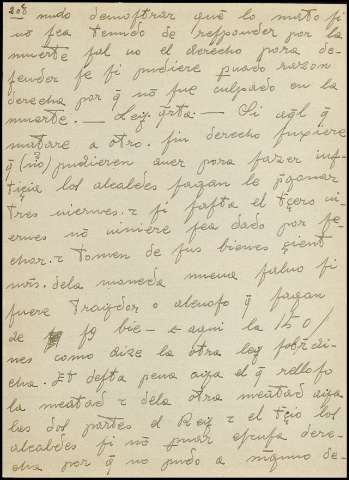 208 mudo demostrar que lo mato si
nō sea tenudo de responder por la
muerte sal uo el derecho para de-
fender se si pudiere puado razon
derecha por q̄ nō fue culpado en la
muerte. — Ley q̄rta. — Si aq̄l q̄
matare a otro. sin derecho fuxiere
q̄ (nō) pudieren auer para fazer ius-
tiçia los alcaldes fagan le p̄gonar
tres uiernes. τ si fasta el tçero ui-
ernes nō uiniere sea dado por fe-
chor. τ tomen de sus bienes çient
mrs. dela moneda nueua saluo si
fuere traydor o aleuoso q̄ fagan
de fg bie- ← aqui la 150/
nes como dize la otra ley sobredi-
cha. Et desta pena aya el q̄ relloso
la meatad τ dela otra meatad aya
las dos partes el Rey τ el tçio los
alcaldes si nō puar escusa dere-
cha por q̄ no pudo a ninguno de-